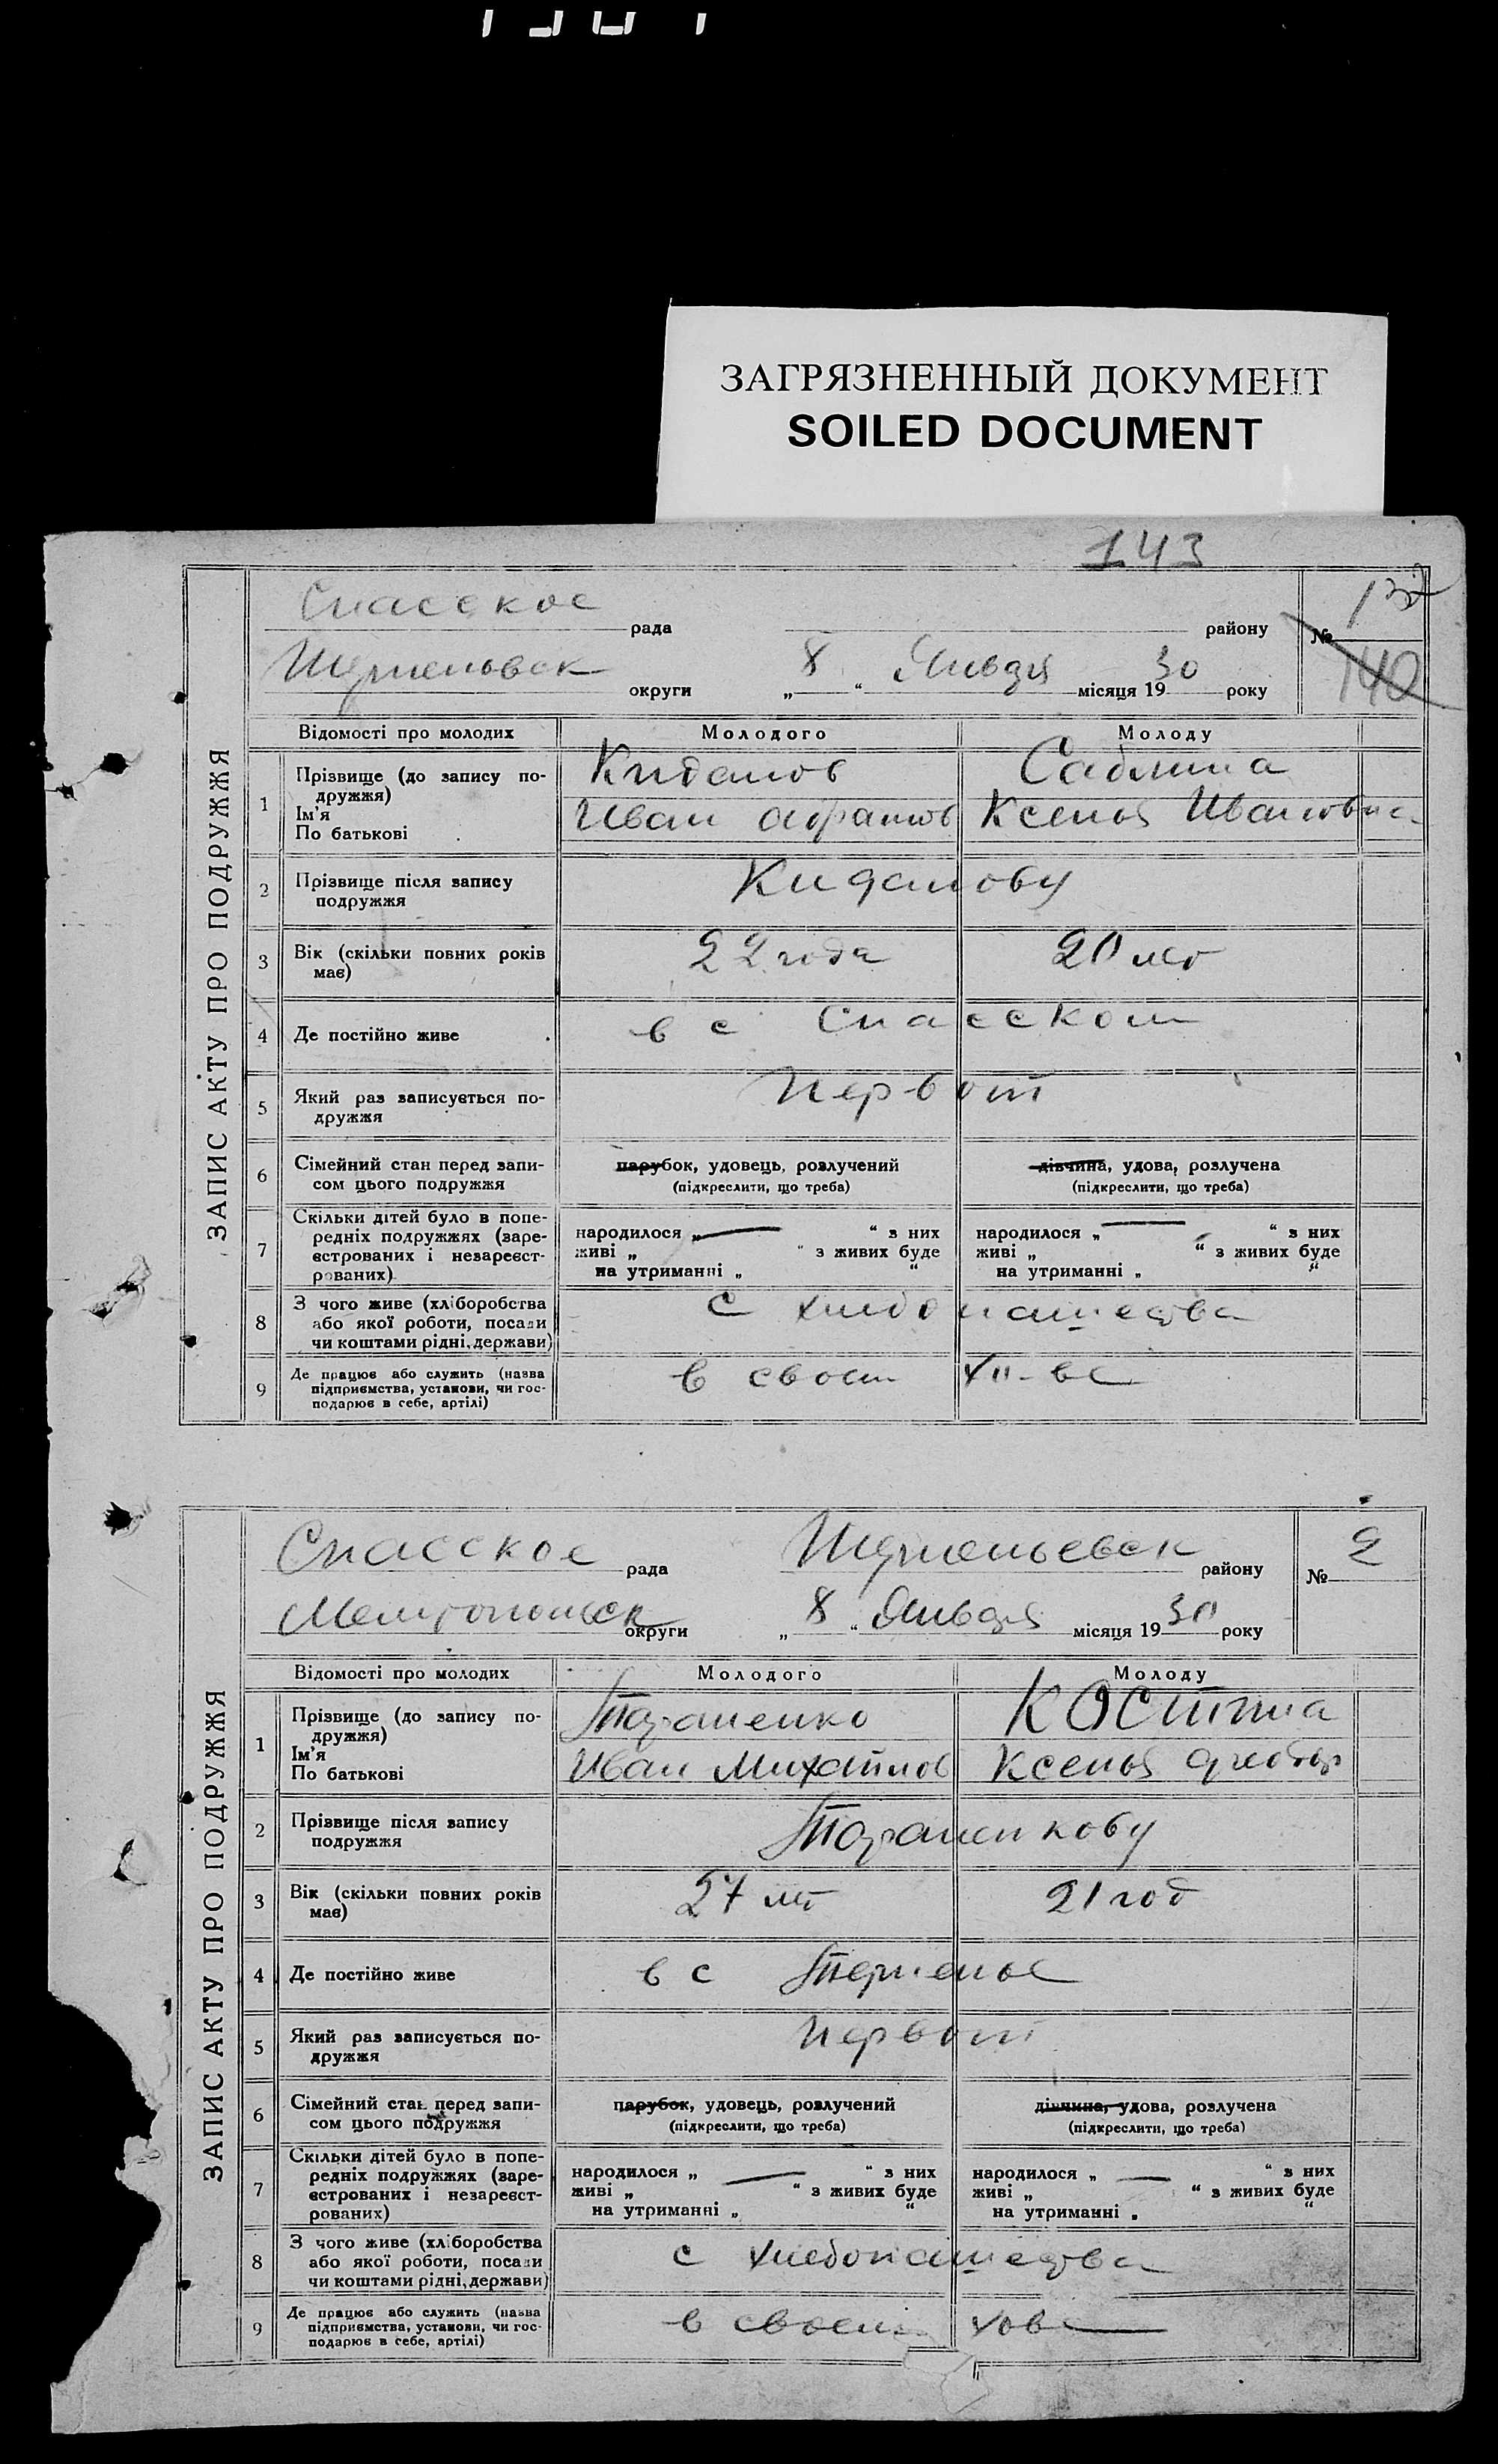 ЗАГРЯЗНЕННЫЙ ДОКУМЕНТ
SOILED DOCUMENT
143
ЗАПИС АКТУ ПРО ПОДРУЖЖЯ
Спасское рада району
№ 140
округи „ 8 “ Января місяця 19 30 року
Відомості про молодих Молодого Молоду
1 Прізвище (до запису по-
дружжя)
Ім'я
По батькові
Киданов
Иван Абрамов Ксенья Ивановна
2 Прізвище після запису
подружжя
Киданову
3 Вік (скільки повних років
має)
22 года 20 лет
4 Де постійно живе
в с Спасском
5 Який раз записується по-
дружжя
Первой
6 Сімейний стан перед запи-
сом цього подружжя
парубок, удовець, розлучений
(підкреслити, що треба)
дівчина, удова, розлучена
(підкреслити, що треба)
7 Скільки дітей було в попе-
редніх подружжях (заре-
єстрованих і незареєст-
рованих)
народилося „ “ з них
живі „ “ з живих буде
на утриманні „ “
народилося „ “ з них
живі „ “ з живих буде
на утриманні „ “
8 З чого живе (хліборобства
або якої роботи, посади
чи коштами рідні, держави)
с хлебопашества
9 Де працює або служить (назва
підприємства, установи, чи гос-
подарює в себе, артілі)
в своем
ЗАПИС АКТУ ПРО ПОДРУЖЖЯ
Спасское рада району
№ 2
округи „ 8 “ Января місяця 19 30 року
Відомості про молодих Молодого Молоду
1 Прізвище (до запису по-
дружжя)
Ім'я
По батькові
Тараненко
Иван Михайлов Ксенья
2 Прізвище після запису
подружжя
Тараненкову
3 Вік (скільки повних років
має)
27 лет 21 год
4 Де постійно живе
в с
5 Який раз записується по-
дружжя
Первой
6 Сімейний стан перед запи-
сом цього подружжя
парубок, удовець, розлучений
(підкреслити, що треба)
дівчина, удова, розлучена
(підкреслити, що треба)
7 Скільки дітей було в попе-
редніх подружжях (заре-
єстрованих і незареєст-
рованих)
народилося „ “ з них
живі „ “ з живих буде
на утриманні „ “
народилося „ “ з них
живі „ “ з живих буде
на утриманні „ “
8 З чого живе (хліборобства
або якої роботи, посади
чи коштами рідні, держави)
с хлебопашества
9 Де працює або служить (назва
підприємства, установи, чи гос-
подарює в себе, артілі)
в своем